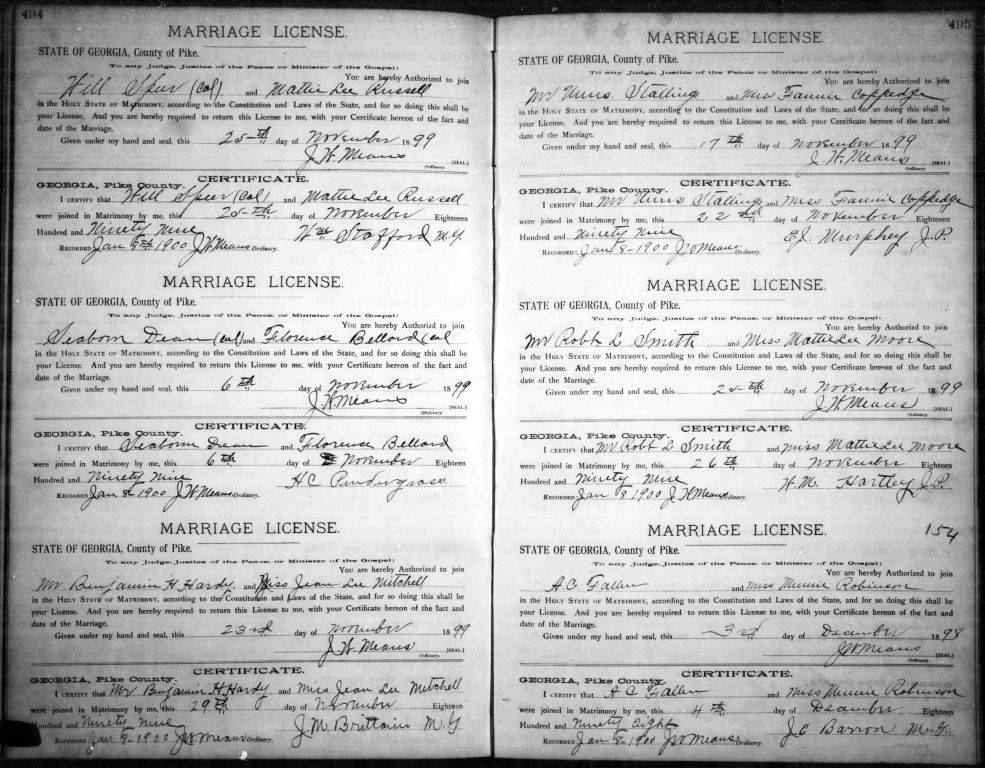 494
MARRIAGE LICENSE.
STATE OF GEORGIA, County of Pike.
To any Judge, Justice of the Peace or Minister of the Gospel:
You are hereby Authorized to join
Will Speer (Col) and Mattie Lee Russell
in the HOLY STATE OF MATRIMONY, according to the Constitution and Laws of the State, and for so doing this shall be
your License. And you are hereby required to return this License to me, with your Certificate hereon of the fact and
date of the Marriage.
Given under my hand and seal, this 25th day of November 1899
J. W. Means [SEAL.]
Ordinary.
CERTIFICATE.
GEORGIA, Pike County.
I CERTIFY that Will Speer (Col) and Mattie Lee Russell
were joined in Matrimony by me, this 25th day of November Eighteen
Hundred and Ninety Nine Wm Stafford M.G.
RECORDED Jan 8th 1900 J W Means Ordinary.
MARRIAGE LICENSE.
STATE OF GEORGIA, County of Pike.
To any Judge, Justice of the Peace or Minister of the Gospel:
You are hereby Authorized to join
Seaborn Dean (Col) and Florence Bellard Col
in the HOLY STATE OF MATRIMONY, according to the Constitution and Laws of the State, and for so doing this shall be
your License. And you are hereby required to return this License to me, with your Certificate hereon of the fact and
date of the Marriage.
Given under my hand and seal, this 6th day of November 1899
J. W Means [SEAL.]
Ordinary.
CERTIFICATE.
GEORGIA, Pike County.
I CERTIFY that Seaborn Dean and Florence Bellard
were joined in Matrimony by me, this 6th day of November Eighteen
Hundred and Ninety Nine H C Pendergrass
RECORDED Jan 8 1900 J W Means Ordinary.
MARRIAGE LICENSE.
STATE OF GEORGIA, County of Pike.
To any Judge, Justice of the Peace or Minister of the Gospel:
You are hereby Authorized to join
Mr Benjamin H. Hardy and Miss Jean Lee Mitchell
in the HOLY STATE OF MATRIMONY, according to the Constitution and Laws of the State, and for so doing this shall be
your License. And you are hereby required to return this License to me, with your Certificate hereon of the fact and
date of the Marriage.
Given under my hand and seal, this 23rd day of November 1899
J. W. Means [SEAL.]
Ordinary.
CERTIFICATE.
GEORGIA, Pike County.
I CERTIFY that Mr Benjamin H. Hardy and Miss Jean Lee Mitchell
were joined in Matrimony by me, this 29th day of November Eighteen
Hundred and Ninety Nine J. M. Brittain M.G
RECORDED Jan 8-1900 J W Means Ordinary.
495
MARRIAGE LICENSE.
STATE OF GEORGIA, County of Pike.
To any Judge, Justice of the Peace or Minister of the Gospel:
You are hereby Authorized to join
Mr Stallings and Miss Fannie Coppedge
in the HOLY STATE OF MATRIMONY, according to the Constitution and Laws of the State, and for so doing this shall be
your License. And you are hereby required to return this License to me, with your Certificate hereon of the fact and
date of the Marriage.
Given under my hand and seal, this 17th day of November 1899
J. W. Means [SEAL.]
Ordinary.
CERTIFICATE.
GEORGIA, Pike County.
I CERTIFY that Mr Stallings and Miss Fannie Coppedge
were joined in Matrimony by me, this 22nd day of November Eighteen
Hundred and Ninety Nine E. J. Murphey J.P.
RECORDED Jan 8-1900 J W Means Ordinary.
MARRIAGE LICENSE.
STATE OF GEORGIA, County of Pike.
To any Judge, Justice of the Peace or Minister of the Gospel:
You are hereby Authorized to join
Mr Robt L Smith and Miss Mattie Lee Moore
in the HOLY STATE OF MATRIMONY, according to the Constitution and Laws of the State, and for so doing this shall be
your License. And you are hereby required to return this License to me, with your Certificate hereon of the fact and
date of the Marriage.
Given under my hand and seal, this 25th day of November 1899
J. W. Means [SEAL.]
Ordinary.
CERTIFICATE.
GEORGIA, Pike County.
I CERTIFY that Mr Robt L Smith and Miss Mattie Lee Moore
were joined in Matrimony by me, this 26th day of November Eighteen
Hundred and Ninety Nine W. M. Hartley J.P.
RECORDED Jan 8 1900 J W Means Ordinary.
MARRIAGE LICENSE. 154
STATE OF GEORGIA, County of Pike.
To any Judge, Justice of the Peace or Minister of the Gospel:
You are hereby Authorized to join
A. C. Fallen and Miss Minnie Robinson
in the HOLY STATE OF MATRIMONY, according to the Constitution and Laws of the State, and for so doing this shall be
your License. And you are hereby required to return this License to me, with your Certificate hereon of the fact and
date of the Marriage.
Given under my hand and seal, this 3rd day of December 1898
J W Means [SEAL.]
Ordinary.
CERTIFICATE.
GEORGIA, Pike County.
I CERTIFY that A C Fallen and Miss Minnie Robinson
were joined in Matrimony by me, this 4th day of December Eighteen
Hundred and Ninety Eight J. C. Barron M.G.
RECORDED Jan 8-1900 J W Means Ordinary.